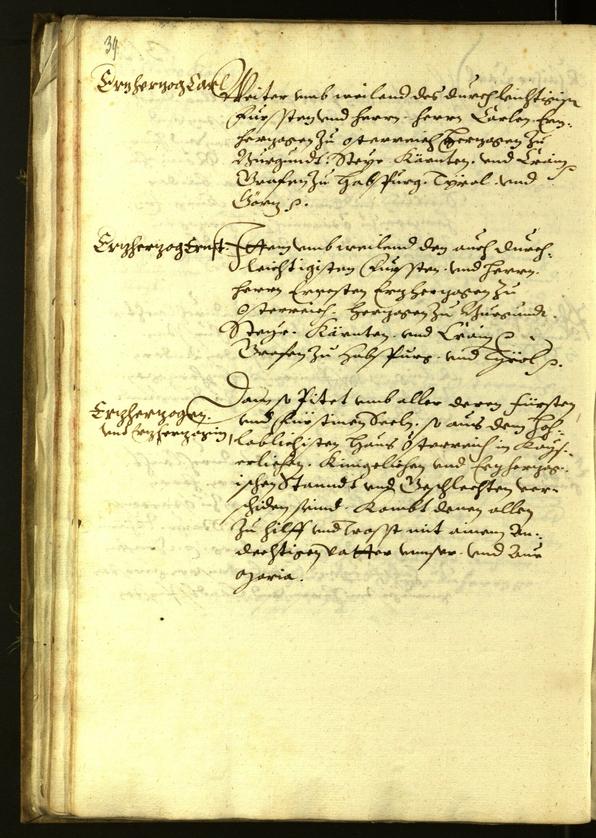 34
Erzherzog Carl
Weiter umb weiland des durchleuchtigisten
Fürsten und herrn herrn Carlen Erz-
herzogen zu Osterreich Herzogen zu
Burgundt. Steyr Kärnten. und Crain
Grafen zu Habspurg. Tyrol. und
Görz p.
Erzherzog Ernst
Ittem umb weilend den auch durch-
leichtigisten Fürsten. und herrn.
herrn Ernesten Erzherzogen zu
Osterreich. Herzogen zu Burgundt.
Steyr. Kärnten. und Crain p.
Grafen zu Habspurg. und Tyrol p.
Erzherzogen.
und Erzherzogin
Dan so Pitet umb aller deren Fürsten
und Fürstinen Seeln. so aus dem hoch-
loblichisten Haus Österreich in Kays-
erlichen. Kiniglichen und Erzherzog-
ischen Standt und Geschlechten ver-
schiden seind. Kombt denen allen
zu hilff und trosst mit ainem An-
dechtigen Vatter unser. und Aue
Maria.